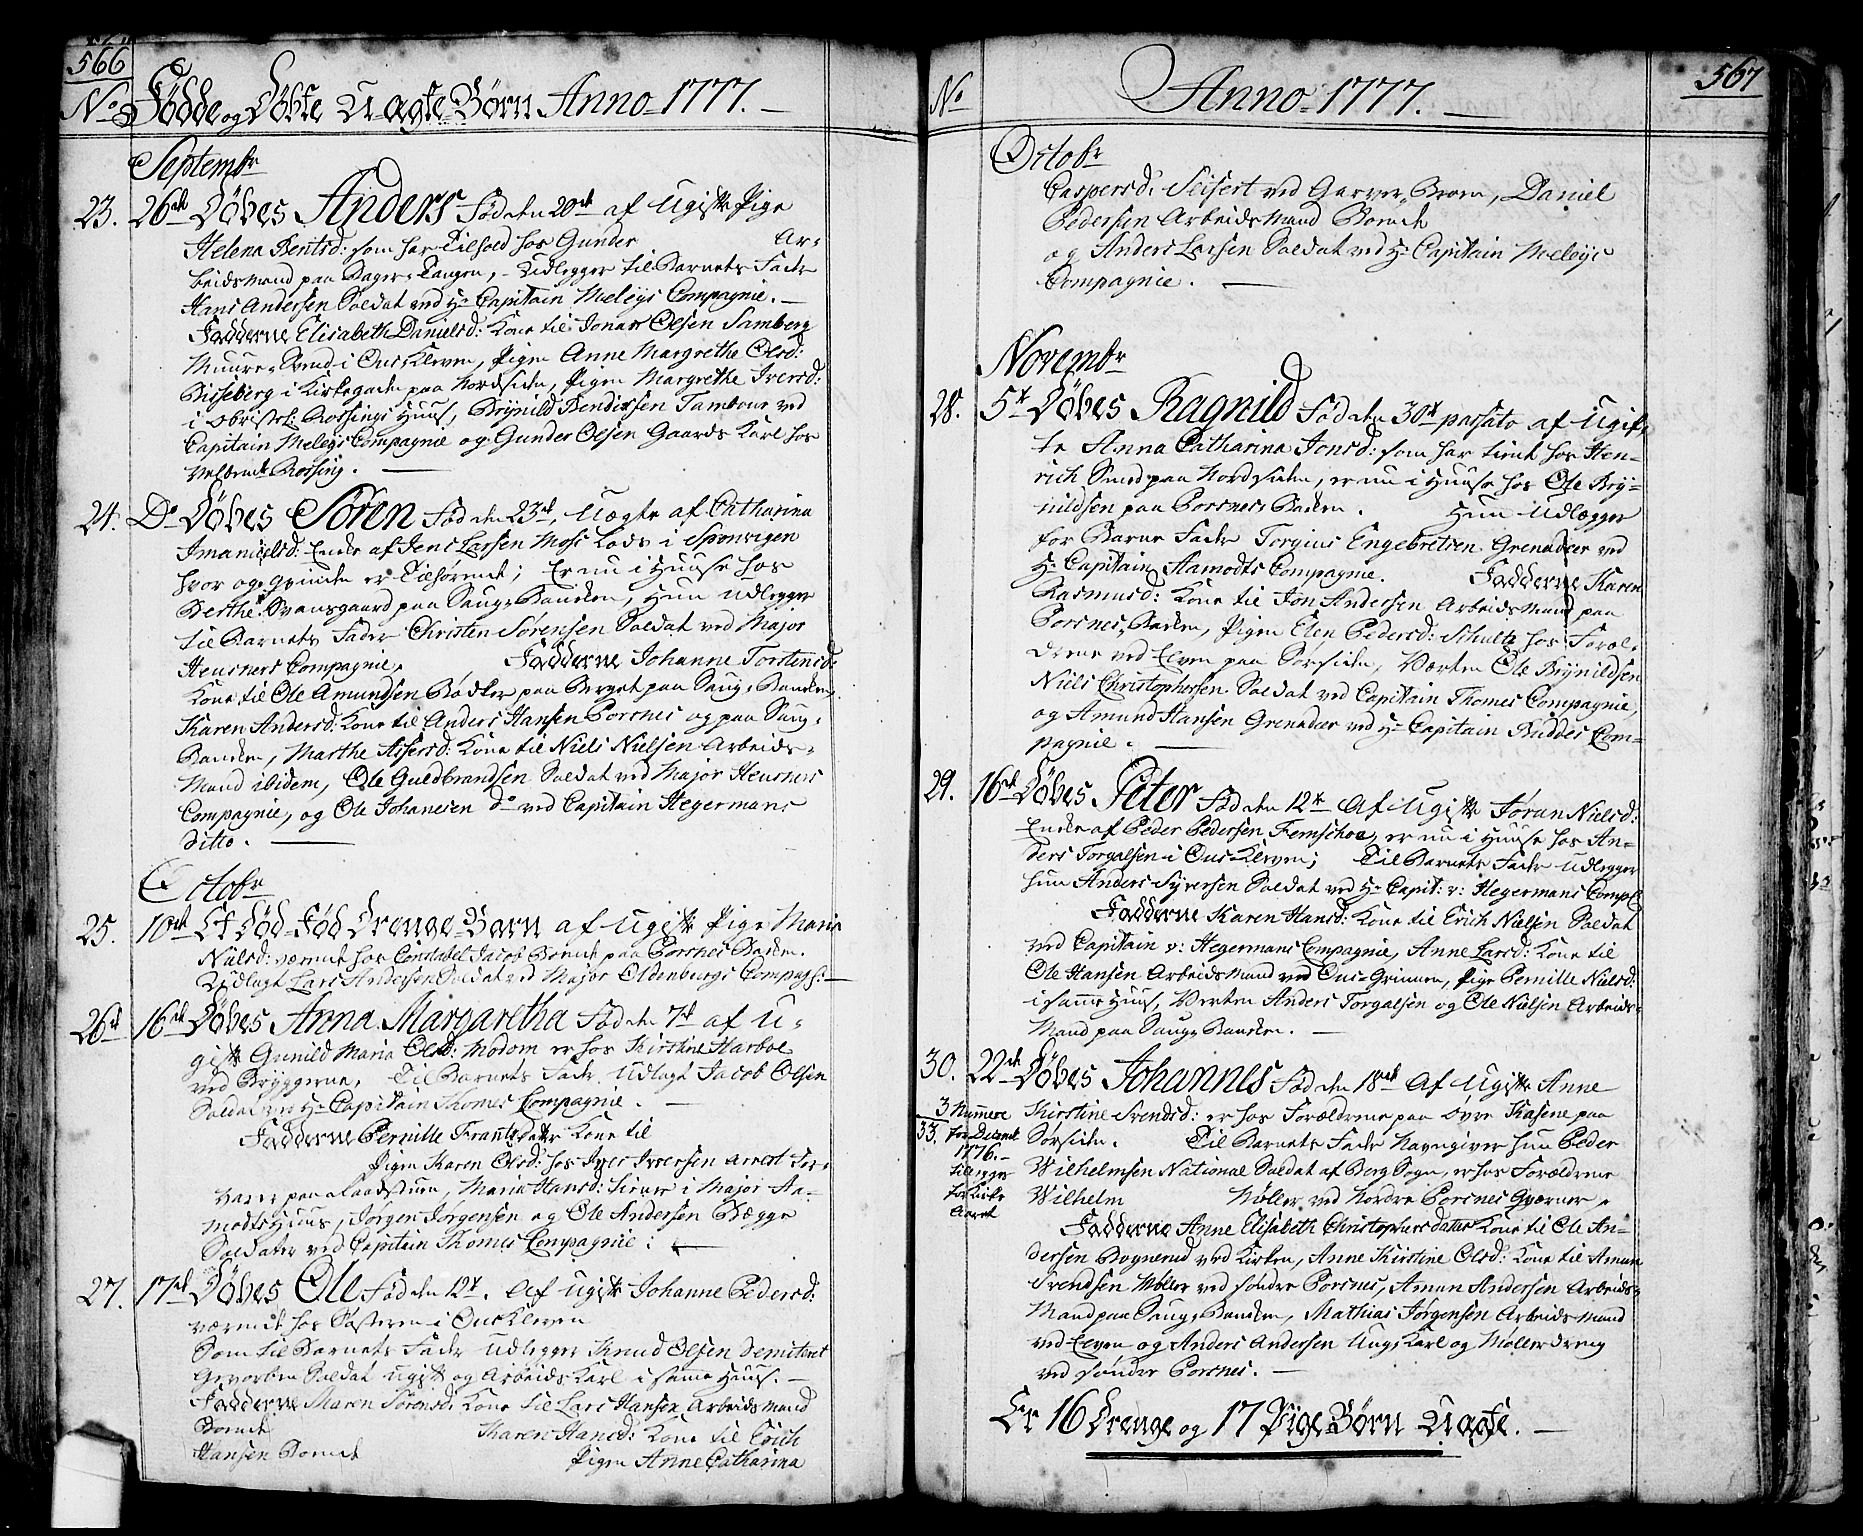 566
No Födde og Döbte Uægte Börn Anno 1777.
Septembr
23. 26de Döbes Anders Fød den 20de af Ugifte Pige
Helena Bentsd: som har Tilhold hos Gunder Ar-
beidsmand paa Tangen, Udlegger til Barnets Fader
Hans Andersen Soldat ved Hr Capitain Meleys Compagnie.
Fadderne Elisabeth Danielsd: Kone til Jonas Olsen Samberg
Muure-Svend i Kleven, Pigen Anne Margrethe Olsd:
i Kirkegaden paa Nordsiden, Pigen Margrethe Iversd:
i Obristl: Rossings Huus, Brÿnild Bendixsen Tambour ved
Capitain Meleys Compagnie og Gunder Olsen Gaards Karl hos
Velbemte Rossing.
24. Do Döbes Sören Fød den 23de, Uægte af Catharina
Imanuelsd: Enke af Jens Larsen Moss Lods i Sponvigen
hvor og qvinden er Tilhørende; Er nu i Huuse hos
Berthe Svansgaard paa Saug-Banken, Hun udlegger
til Barnets Fader Christen Sørensen Soldat ved Major
Heusners Compagnie, Fadderne Johanne Torstensd:
Kone til Ole Amundsen Bødker paa Berget paa Saug-Banken,
Karen Andersd: Kone til Anders Hansen Porsnes og paa Saug-
Banken, Marthe Assersd: Kone til Niels Nielsen Arbeids-
Mand ibidem, Ole Guldbrandsen Soldat ved Major Heusners
Compagnie, og Ole Johanesen do ved Capitain Hegermans
ditto.
Octobr
25. 10de Et Død-Fød Drenge-Barn af Ugift Pige Maria
Nielsd: værende hos Constabel Jacob paa Porsnes Banken.
Udlagt Lars Andersen Soldat ved Major Oldenborgs Compagn:
26de 16de Döbes Anna Margaretha Fød den 7de af U-
gift Gunild Maria Olsd: Modom er hos Kirstine Harboe
ved Bryggerne, Til Barnets Fader Udlagt Jacob Olsen
Soldat ved Hr Capitain Thomes Compagnie.
Fadderne Pernille Frantzdatter Kone til
Pigen Karen Olsd: hos Iver Iversen Arrest For-
varer paa Raadstuen, Maria Hansd: tiener i Major Aa-
modts Huus, Jørgen Jørgensen og Ole Andersen Begge
Soldater ved Capitain Thomes Compagnie:
27. 17de Döbes Ole Fød den 12te. Af Ugift Johanne Pedersd:
værende hos Søsteren i Kleven
Som til Barnets Fader udlegger Knud Olsen Demiteret
Gevorben Soldat ugift og Arbeids Karl i samme Huus.
Fadderne Maren Sørensd: Kone til Lars Hansen Arbeidsmand
Bemte Karen Hansd: Kone til Erich
Hansen Bemte Pigen Anne Catharina
567
No Anno 1777.
Octobr
Caspersd: Seifert ved Garver Broen, Daniel
Pedersen Arbeidsmand
og Anders Larsen Soldat ved Hr Capitain Meleys
Compagnie.
Novembr
28. 5te Döbes Ragnild Fød den 30te passato af Ugif-
te Anna Catharina Jonsd: som har tient hos Hen-
rich Smed paa Nordsiden, er nu i Huuse hos Ole Brÿ-
nildsen paa Porsnes Banken. Hun udlægger
for Barne Fader Torgius Engebretsen Grenadeer ved
Hr Capitain Aamodts Compagnie. Fadderne Karen
Rasmusd: Kone til Jon Andersen Arbeidsmand paa
Porsnes-Banken, Pigen Elen Pedersd: Schulte hos Foræl-
drene ved Elven paa Sørsiden, Værten Ole Brÿnildsen
Niels Christophersen Soldat ved Capitain Thomes Compagnie,
og Amund Hansen Grenadeer ved Hr Capitain Buddes Com-
pagnie.
29. 16de Döbes Peter Fød den 12te Af Ugift Jøran Nielsd:
Enke af Peder Pedersen Femschoe, er nu i Huuse hos An-
ders Torgalsen i Kleven; Til Barnets Fader udlegger
hun Anders Syversen Soldat ved Hr Capit: v: Hegermans Comp:
Fadderne Karen Hansd: Kone til Erich Nielsen Soldat
ved Capitain v: Hegermans Compagnie, Anne Larsd: Kone til
Ole Hansen Arbeidsmand ved Grinnen, Pige Pernille Nielsd:
i samme Huus, Verten Anders Torgalsen og Ole Nielsen Arbeids-
Mand paa Saug-Banken.
30. 22de Döbes Johannes Fød den 18de Af Ugifte Anne
Kirstine Svendsd: er hos Forældrene paa øvre Kasene paa
Sørsiden. Til Barnets Fader Navngiver hun Peder
Wilhelmsen National Soldat af Berg Sogn, er hos Forældrene
Wilhelm Møller ved Nordre Porsnes Qværner,
Fadderne Anne Elisabeth Christophersdatter Kone til Ole An-
dersen ved Kirken, Anne Kirstine Olsd: Kone til Amun
Svendsen Møller ved søndre Porsnes, Amun Andersen Arbeids-
Mand paa Saug-Banken, Mathias Jørgensen Arbeidsmand
ved Elven og Anders Andersen Ung Karl og Møllerdreng
ved sønder Porsnes.
3 Numere
33. for Decembr
1776.
tillegges
forKirke
Aaret
Er 16 Drenge og 17 Pige Börn Uægte.